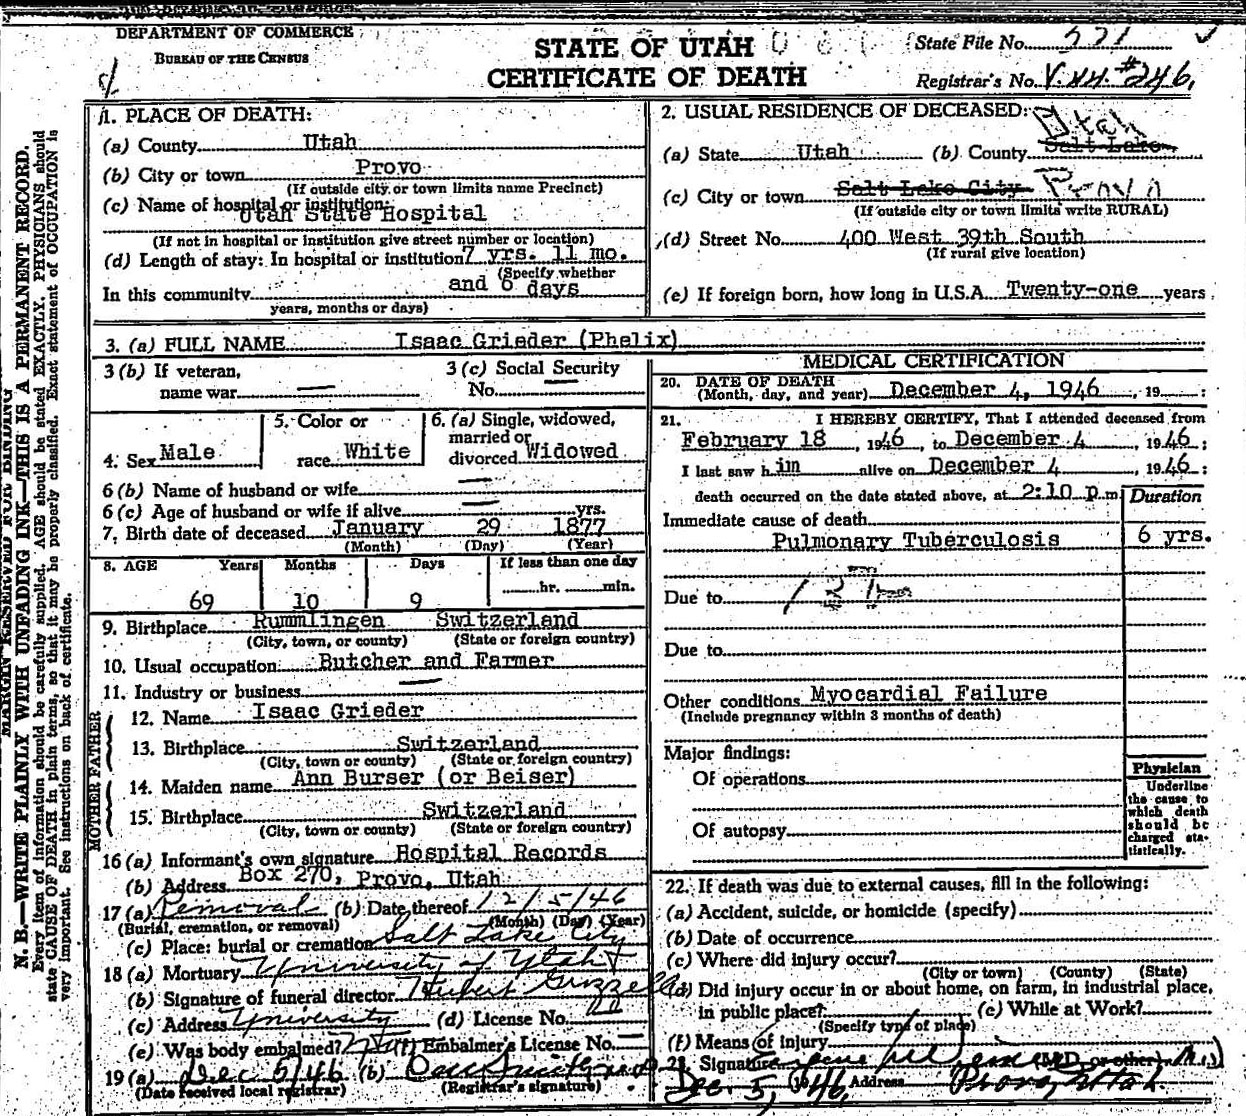 DEPARTMENT OF COMMERCE
BUREAU OF THE CENSUS
STATE OF UTAH
CERTIFICATE OF DEATH
State File No. 571
Registrar's No. V.44.#246.
MARGIN RESERVED FOR BINDING
N. B.—WRITE PLAINLY WITH UNFADING INK—THIS IS A PERMANENT RECORD.
Every item of information should be carefully supplied. AGE should be stated EXACTLY. PHYSICIANS should
state CAUSE OF DEATH in plain terms, so that it may be properly classified. Exact statement of OCCUPATION is
very important. See instructions on back of certificate.
1. PLACE OF DEATH:
(a) County Utah
(b) City or town Provo
(If outside city or town limits name Precinct)
(c) Name of hospital or institution:
Utah State Hospital
(If not in hospital or institution give street number or location)
(d) Length of stay: In hospital or institution 7 yrs. 11 mo.
(Specify whether
In this community and 6 days
years, months or days)
2. USUAL RESIDENCE OF DECEASED:
(a) State Utah (b) County Salt Lake Utah
(c) City or town Salt Lake City Provo
(If outside city or town limits write RURAL)
(d) Street No. 400 West 39th South
(If rural give location)
(e) If foreign born, how long in U.S.A. Twenty-one years
3. (a) FULL NAME Isaac Grieder (Phelix)
3 (b) If veteran,
name war —
3 (c) Social Security
No. —
4. Sex Male
5. Color or
race White
6. (a) Single, widowed,
married or
divorced Widowed
6 (b) Name of husband or wife —
6 (c) Age of husband or wife if alive — yrs.
7. Birth date of deceased January 29 1877
(Month) (Day) (Year)
8. AGE Years Months Days If less than one day
69 10 9 hr. min.
9. Birthplace Rummlingen Switzerland
(City, town, or county) (State or foreign country)
10. Usual occupation Butcher and Farmer
11. Industry or business —
FATHER
12. Name Isaac Grieder
13. Birthplace Switzerland
(City, town or county) (State or foreign country)
MOTHER
14. Maiden name Ann Burser (or Beiser)
15. Birthplace Switzerland
(City, town or county) (State or foreign country)
16 (a) Informant's own signature Hospital Records
(b) Address Box 270, Provo, Utah
17 (a) Removal (b) Date thereof 12/5/46
(Burial, cremation, or removal) (Month) (Day) (Year)
(c) Place: burial or cremation Salt Lake City
18 (a) Mortuary University of Utah
(b) Signature of funeral director Hubert Grizzell
(c) Address University (d) License No.
(e) Was body embalmed? (f) Embalmer's License No. —
19 (a) Dec 5/46 (b)
(Date received local registrar) (Registrar's signature)
MEDICAL CERTIFICATION
20. DATE OF DEATH
(Month, day, and year) December 4, 1946, 19 :
21. I HEREBY CERTIFY, That I attended deceased from
February 18, 1946, to December 4, 1946;
I last saw him alive on December 4, 1946;
death occurred on the date stated above, at 2:10 p.m.
Duration
Immediate cause of death
Pulmonary Tuberculosis 6 yrs.
Due to
Due to
Other conditions Myocardial Failure
(Include pregnancy within 3 months of death)
Major findings:
Of operations
Of autopsy
Physician
Underline
the cause to
which death
should be
charged sta-
tistically.
22. If death was due to external causes, fill in the following:
(a) Accident, suicide, or homicide (specify)
(b) Date of occurrence
(c) Where did injury occur?
(City or town) (County) (State)
(d) Did injury occur in or about home, on farm, in industrial place,
in public place? (e) While at Work?
(Specify type of place)
(f) Means of injury
23. Signature (M.D. or other) M.D.
Dec. 5, 1946, Address Provo, Utah.